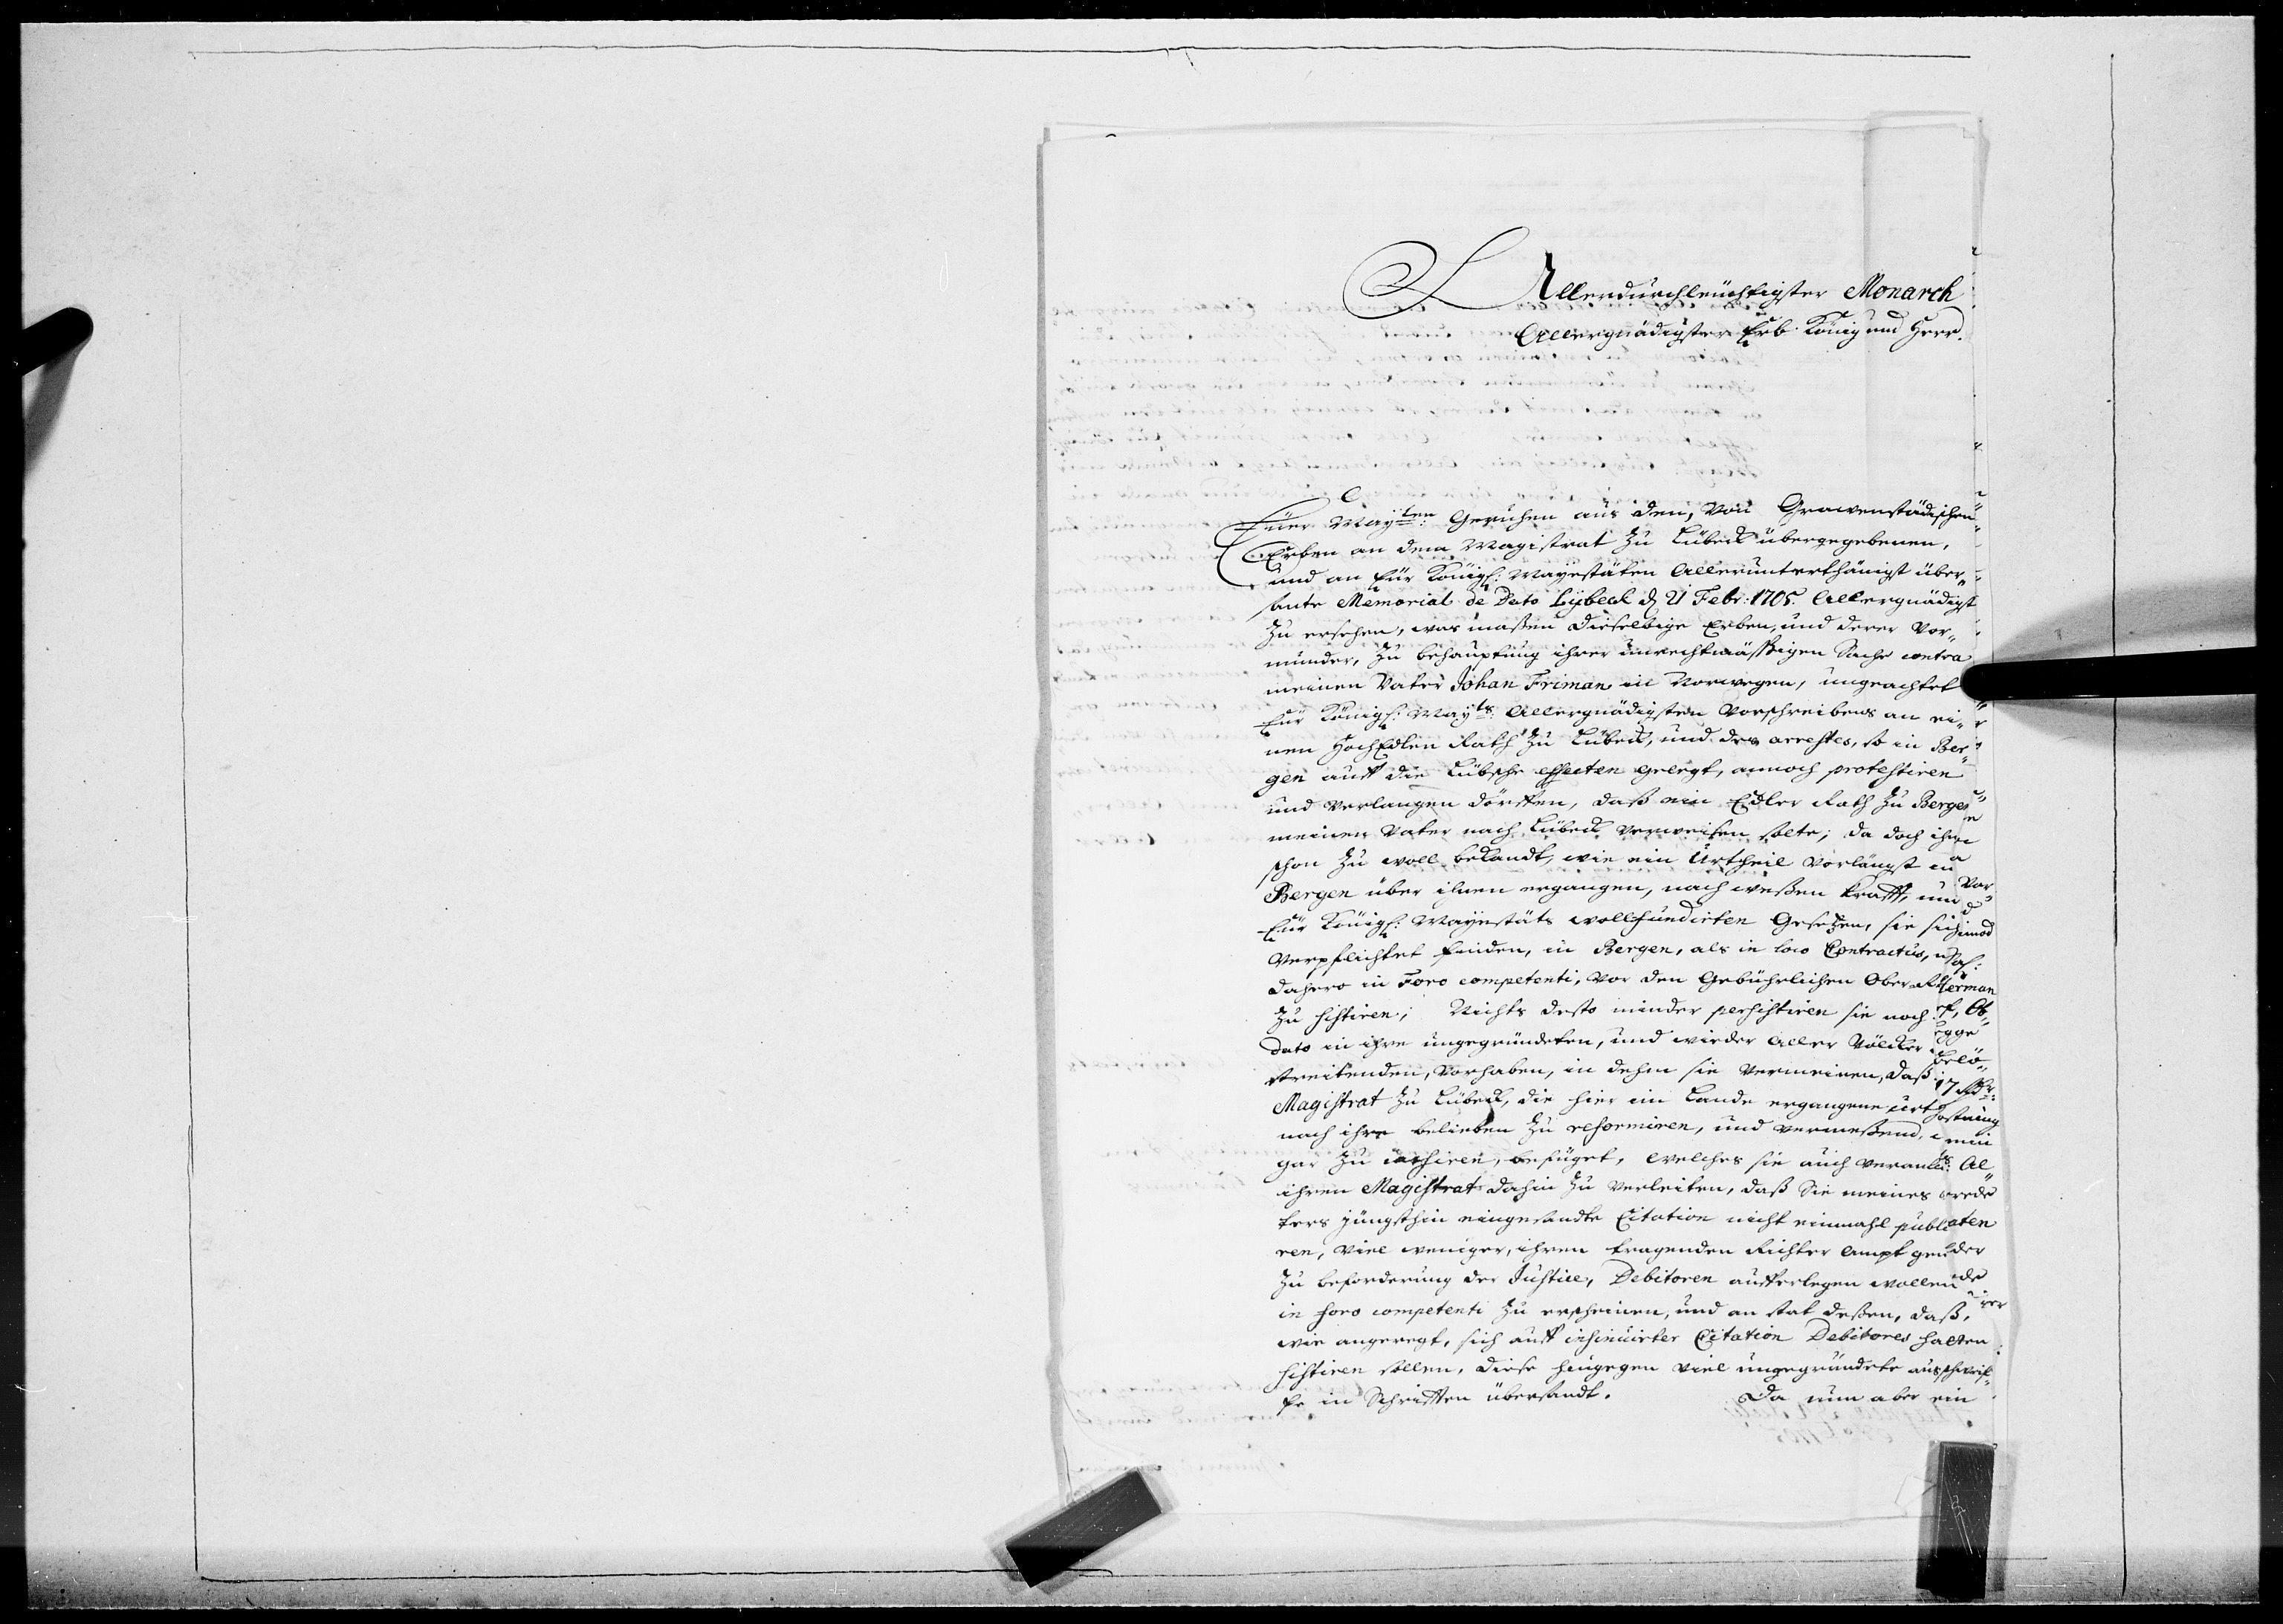 Allerdurchleuchtigster Monarch
Allergnädigster Erb König und Herr.
Euer Mayten: Geruhen aus den, von Grawenstädischen
Erben an dem Magistrat zu Lübeck übergegebenen,
und an Eur Königl: Mayestäten Allerunterthänigst über„
sante Memorial de Dato Lybeck d. 21 Febr: 1705. Allergnädigst
zu ersehen, was maßen dieselbige Erben, und derer Vor„
münder, zu behauptung ihrer unrechtmässigen Sache contra
meinen Vater Johan Friman in Norwegen, ungeachtet
Eur Königl: Mayts: Allergnädigsten Vorschreibens an ei„
nen HochEdlen Rath zu Lübeck, und des arrestes, so in Ber„
gen auff die Lübsche effecten gelegt, annoch protestiren
und verlangen dörffen, daß ein Edler Rath zu Bergen
meinen Vater nach Lübeck verweisen solte; da doch ihnen
schon zu woll bekandt, wie ein Urtheil vorlängst in
Bergen über ihnen ergangen, nach weßen krafft, und
Eur Königl: Mayestäts wollfundirten Gesetzen, sie sich
verpflichtet finden, in Bergen, als in loco Contractus, u
dahero in Foro competenti, vor den Gebührlichen Ober
zu sistiren; Nichts desto minder persistiren sie noch
dato in ihre ungegründeten, und wieder aller Völcker
streitenden, vorhaben, in dehm sie vermeinen, daß
Magistrat zu Lübeck, die hier im Lande ergangene urt
nach ihre belieben zu reformiren, und vermeßend,
gar zu cassiren, befüget, welches sie auch veranl
ihren Magistrat dahin zu verleiten, daß Sie meines
ters jüngsthin eingesandte Citation nicht einmahl publi
ren, viel weniger, ihren tragenden Richter ampt gem
zu beforderung der Justice, Debitoren aufferlegen wollen
in foro competenti zu erscheinen, und an stat deßen, daß,
wie angeregt, sich auff insinuirter Citation Debitores hatten
sistiren sollen, diese hingegen viel ungegründete ausschweif„
fe in Schrifften übersandt. Da nun aber ein